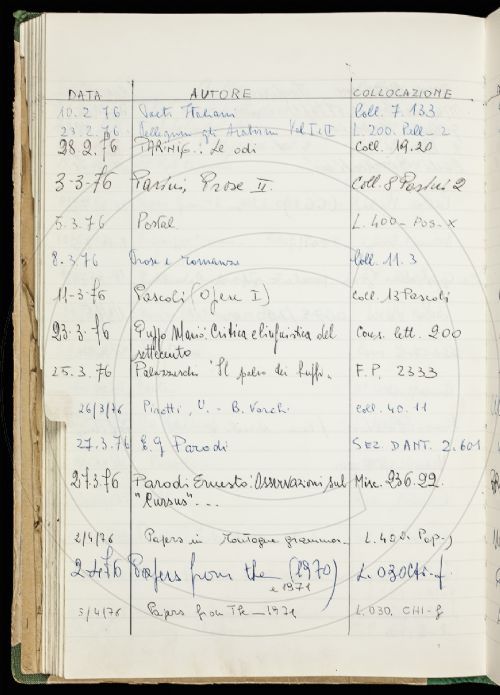 DATA AUTORE COLLOCAZIONE
10.2.76 Poeti Italiani Coll. 7.133
23.2.76 Pellegrini gli Vol I e II L. 200. Pell- 2
28.2.76 PARINI G.: Le odi Coll. 19.20
3-3-76 Parini, Prose II. Coll. 8 Parini 2
5.3.76 Postal L. 400- Pos- X
8.3.76 Prose e romanze Coll. 11.3
11-3-76 Pascoli (Opere I) Coll. 13 Pascoli
23-3-76 Puppo Mario: Critica e linguistica del Cons. lett. 200
settecento
25.3.76 Palazzeschi "Il palio dei buffi" F.P. 2333
26/3/76 Pirotti, U. - B. Varchi Coll. 40.11
27.3.76 E.G Parodi SEZ. D'ANT. 2.601
27.3.76 Parodi Ernesto: Osservazioni sul Misc. 236.22.
"Cursus"...
2/4/76 Papers in Montague grammar L. 40
2.4.76 Papers from the (1970) L. 030 CHI-f.
e 1971
5/4/76 Papers from The - 1971 L. 030. CHI-f